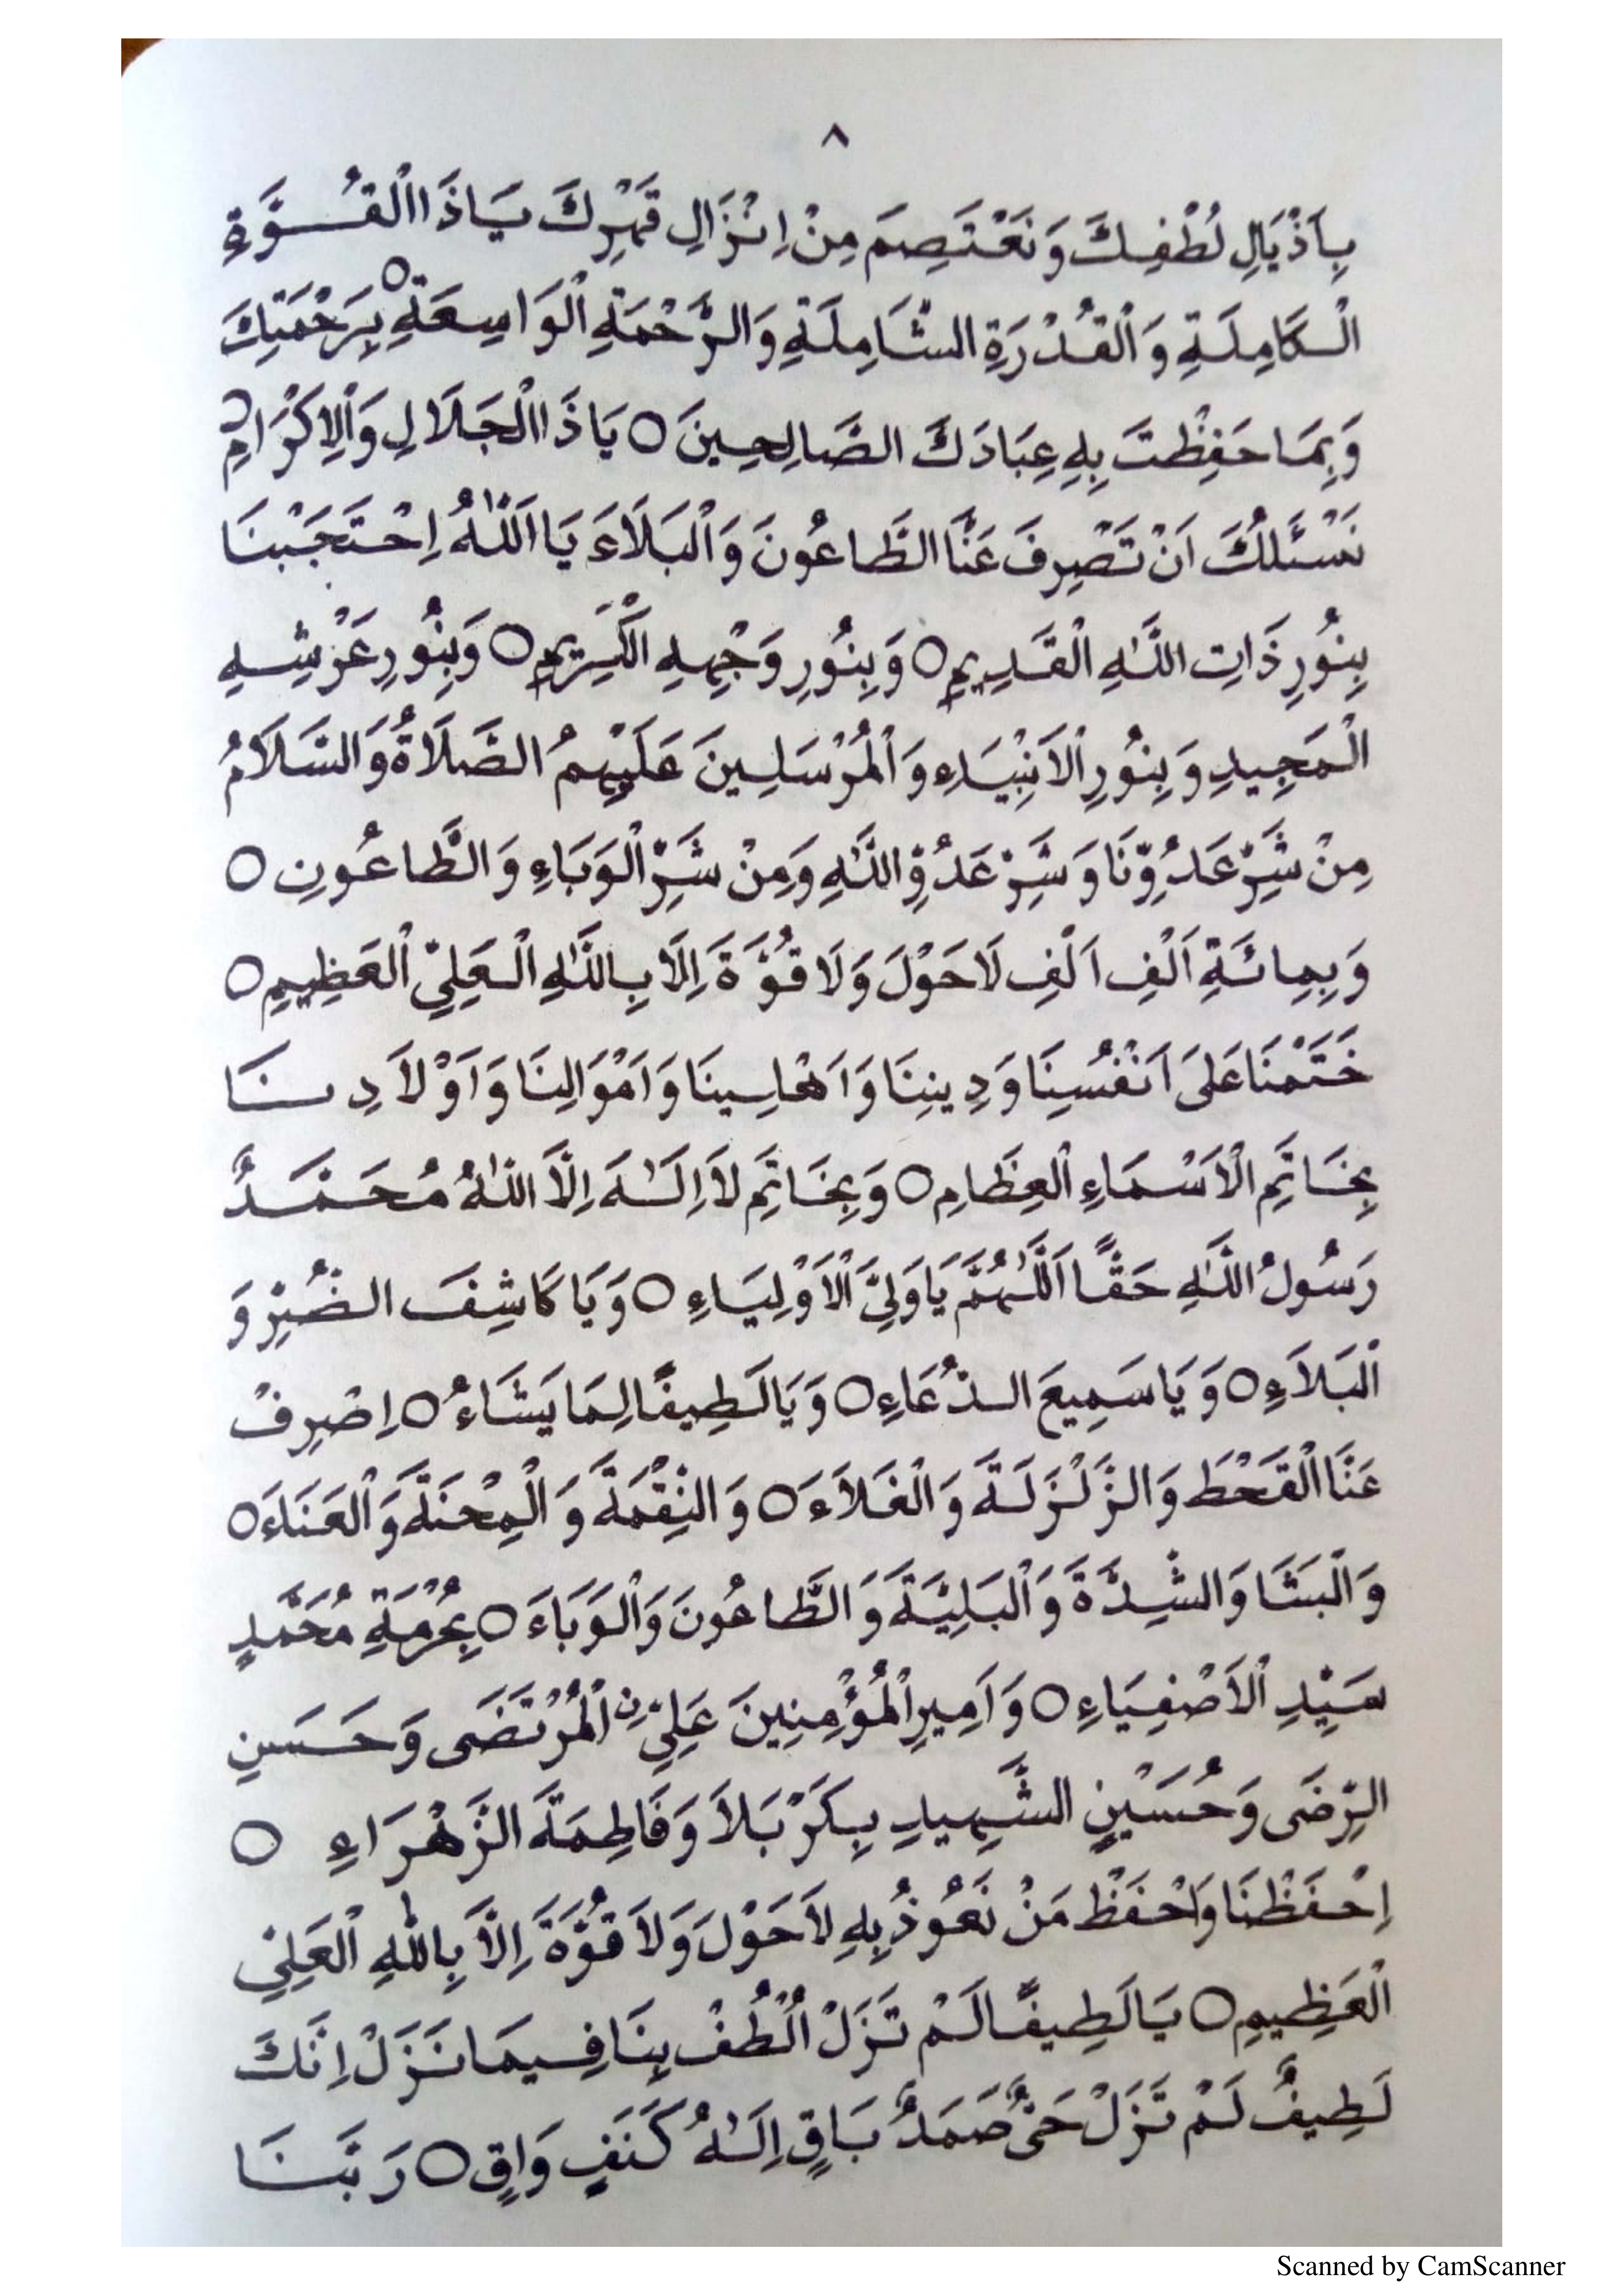 ٨
بِاَذْيَالِ لُطْفِكَ وَنَعْتَصِمَ مِنْ اِنْزَالِ قَهْرِكَ يَاذَا الْقُوَّةِ
الْكَامِلَةِ وَالْقُدْرَةِ الشَّامِلَةِ وَالرَّحْمَةِ الْوَاسِعَةِ ○ بِرَحْمَتِكَ
وَبِمَا حَفِظْتَ بِهِ عِبَادَكَ الصَّالِحِينَ ○ يَاذَا الْجَلَالِ وَالْاِكْرَامِ ○
نَسْئَلُكَ اَنْ تَصْرِفَ عَنَّا الطَّاعُونَ وَالْبَلَاءَ يَا اَللّٰهُ اِحْتَجَبْنَا
بِنُورِ ذَاتِ اللّٰهِ الْقَدِيمِ ○ وَبِنُورِ وَجْهِهِ الْكَرِيمِ ○ وَبِنُورِ عَرْشِهِ
الْمَجِيدِ وَبِنُورِ الْاَنْبِيَاءِ وَالْمُرْسَلِينَ عَلَيْهِمُ الصَّلَاةُ وَالسَّلَامُ
مِنْ شَرِّ عَدُوِّنَا وَشَرِّ عَدُوِّ اللّٰهِ وَمِنْ شَرِّ الْوَبَاءِ وَالطَّاعُونِ ○
وَبِمِائَةِ اَلْفِ اَلْفِ لَا حَوْلَ وَلَا قُوَّةَ اِلَّا بِاللّٰهِ الْعَلِيِّ الْعَظِيمِ ○
خَتَمْنَا عَلَى اَنْفُسِنَا وَدِينِنَا وَاَهَالِينَا وَاَمْوَالِنَا وَاَوْلَادِنَا
بِخَاتَمِ الْاَسْمَاءِ الْعِظَامِ ○ وَبِخَاتَمِ لَا اِلٰهَ اِلَّا اللّٰهُ مُحَمَّدٌ
رَسُولُ اللّٰهِ حَقًّا اَللّٰهُمَّ يَا وَلِيَّ الْاَوْلِيَاءِ ○ وَيَا كَاشِفَ الضُّرِّ وَ
الْبَلَاءِ ○ وَيَا سَمِيعَ الدُّعَاءِ ○ وَيَا لَطِيفًا لِمَا يَشَاءُ ○ اِصْرِفْ
عَنَّا الْقَحْطَ وَالزَّلْزَلَةَ وَالْغَلَاءَ ○ وَالنِّقْمَةَ وَالْمِحْنَةَ وَالْعَنَاءَ ○
وَالْبَشَا وَالشِّدَّةَ وَالْبَلِيَّةَ وَالطَّاعُونَ وَالْوَبَاءَ ○ بِحُرْمَةِ مُحَمَّدٍ
سَيِّدِ الْاَصْفِيَاءِ ○ وَاَمِيرِ الْمُؤْمِنِينَ عَلِيِّ نِ الْمُرْتَضَى وَحَسَنِ
الرِّضَى وَحُسَيْنٍ الشَّهِيدِ بِكَرْبَلَا وَفَاطِمَةَ الزَّهْرَاءِ ○
اِحْفَظْنَا وَاحْفَظْ مَنْ نَعُوذُ بِهِ لَا حَوْلَ وَلَا قُوَّةَ اِلَّا بِاللّٰهِ الْعَلِيِّ
الْعَظِيمِ ○ يَا لَطِيفًا لَمْ تَزَلْ اُلْطُفْ بِنَا فِيمَا نَزَلْ اِنَّكَ
لَطِيفٌ لَمْ تَزَلْ حَيٌّ صَمَدٌ بَاقٍ اِلٰهُ كَنَفٍ وَاقٍ ○ رَبَّنَا
Scanned by CamScanner